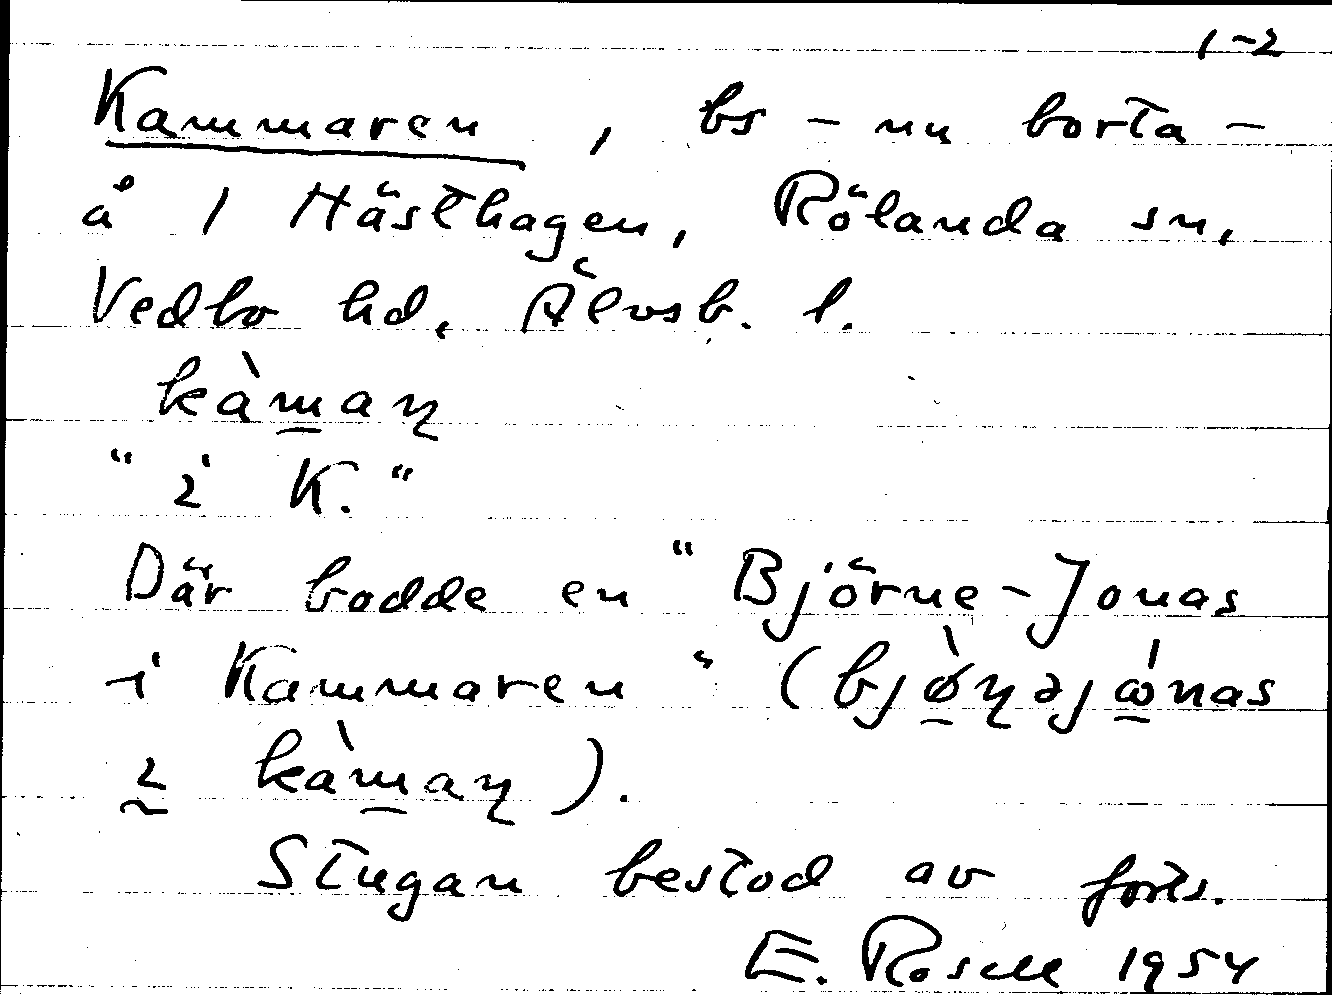 1-2
Kammaren, bs - nu borta -
å 1 Hästhagen, Rölanda sn,
Vedbo hd, Älvsb. l.
kàm̲aɳ
"i K."
Där bodde en "Björne-Jonas
i Kammaren" (bjø̲̀ɳəjώ̲nas
ɩ̰ kàm̲aɳ).
Stugan bestod av forts.
E. Rosell 1954